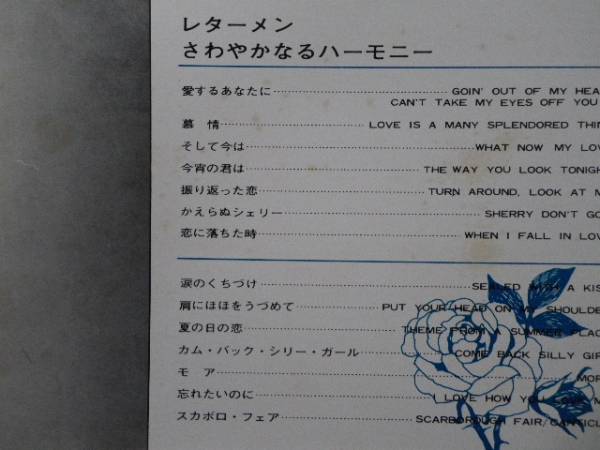 レターメン
さわやかなるハーモニー
愛するあなたに GOIN' OUT OF MY HEA
CAN'T TAKE MY EYES OFF YOU
慕 情 LOVE IS A MANY SPLENDORED THIN
そして今は WHAT NOW MY LOV
今宵の君は THE WAY YOU LOOK TONIGH
振り返った恋 TURN AROUND, LOOK AT M
かえらぬシェリー SHERRY DON'T GO
恋に落ちた時 WHEN I FALL IN LOV
涙のくちづけ SEALED WITH A KIS
肩にほほをうづめて PUT YOUR HEAD ON MY SHOULDE
夏の日の恋 THEME FROM A SUMMER PLAC
カム・バック・シリー・ガール COME BACK SILLY GIR
モ ア MOR
忘れたいのに I LOVE HOW YOU LOVE M
スカボロ・フェア SCARBOROUGH FAIR/CANTICL